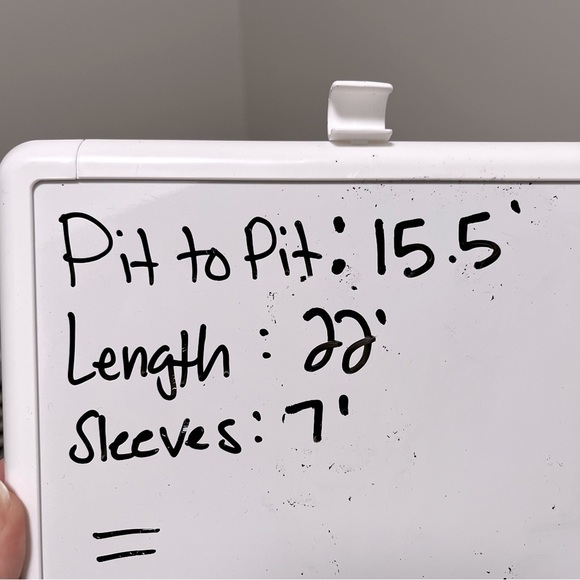 Pit to Pit: 15.5'
Length: 22'
Sleeves: 7'
=